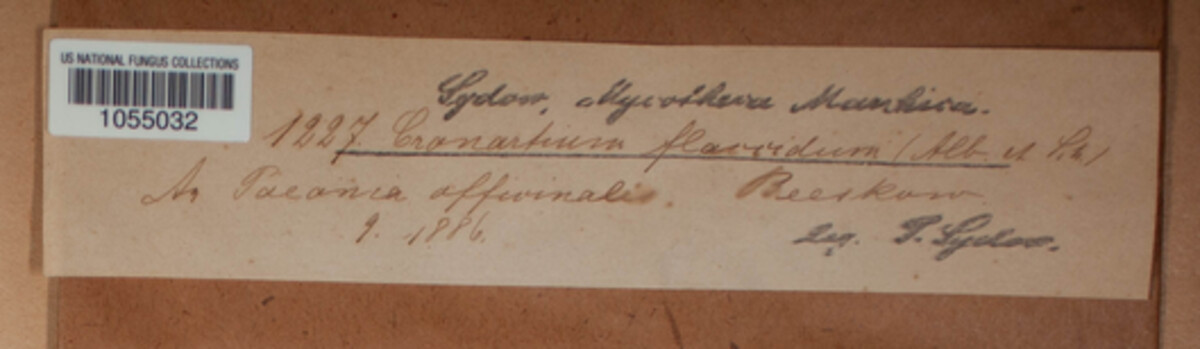 US NATIONAL FUNGUS COLLECTIONS
1055032
Sydow, Mycotheca Marchica.
1227. Cronartium flaccidum (Alb. et S.)
An Paeonia officinalis. Beeskow
9. 1886.
Leg. P. Sydow.